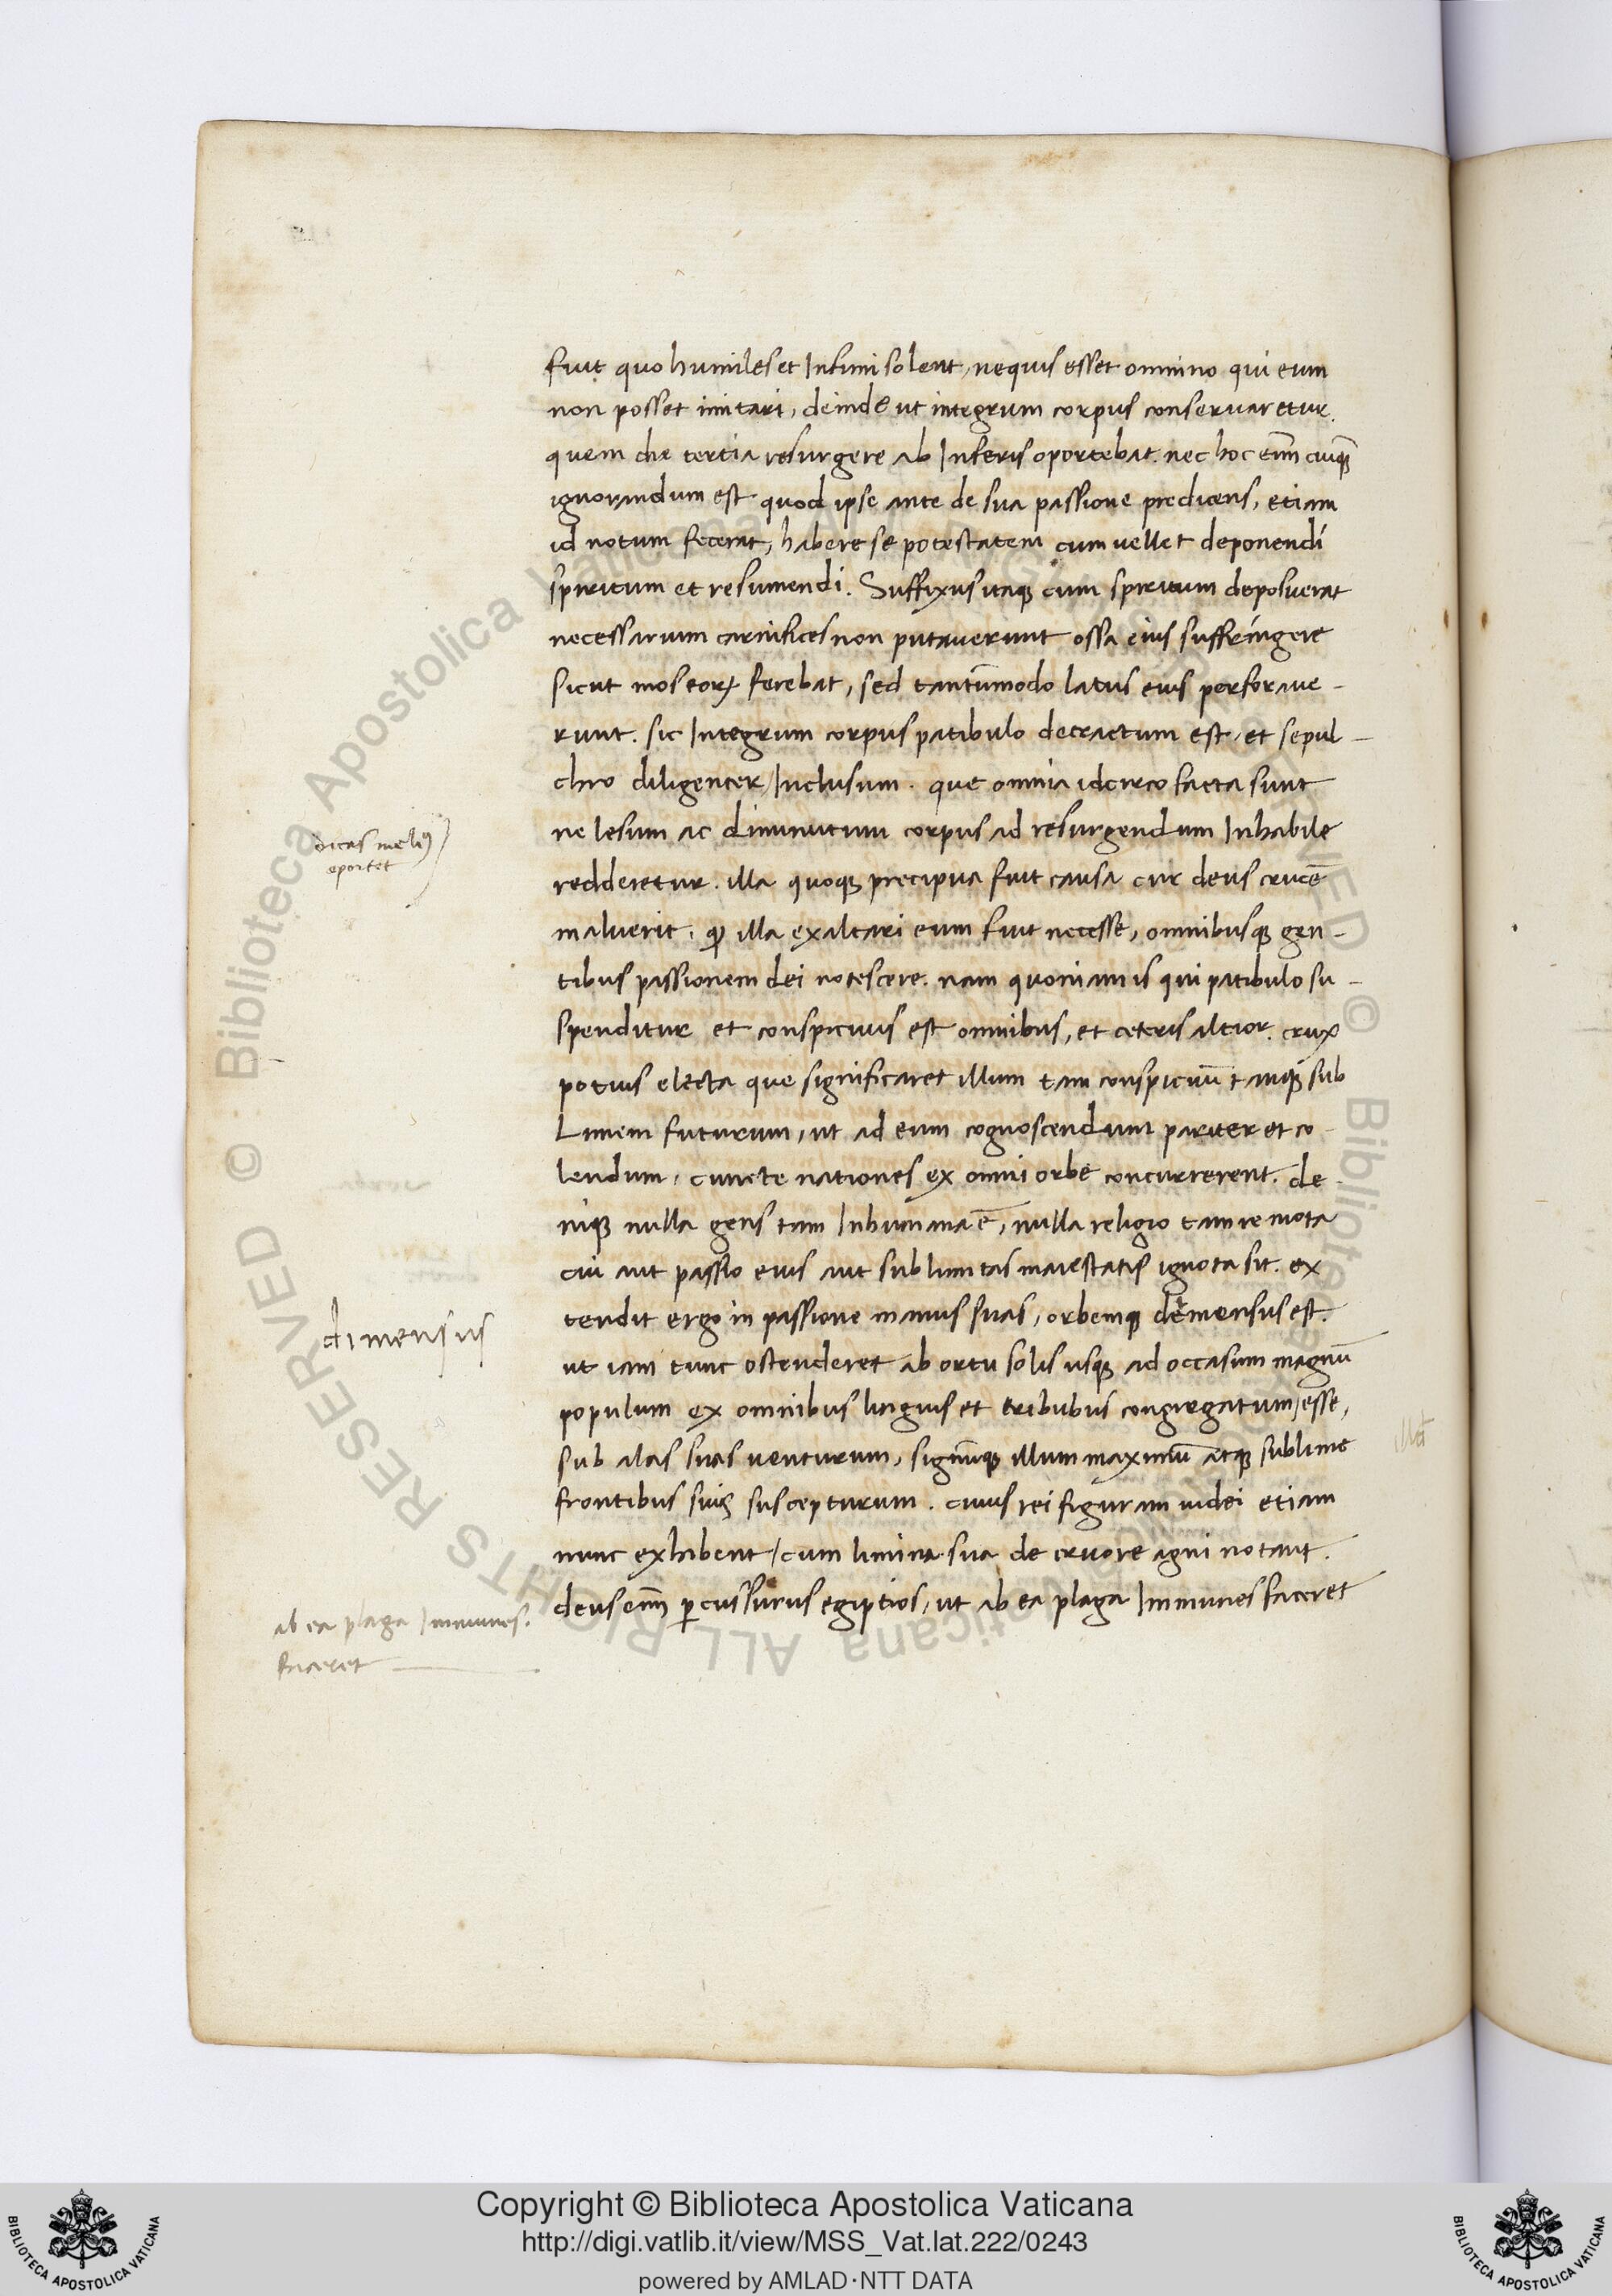 fuit quo humiles et Infimi solent, nequis esset omnino qui eum
non posset imitari, deinde ut integrum corpus conservaretur.
quem die tertia resurgere ab Inferis oportebat. nec hoc eni̅m cuiq̅
ignorandum est quod ipse ante de sua passione predicens, etiam
id notum fecerat, habere se potestatem cum uellet deponendi
spiritum et resumendi. Suffixus itaqꝫ cum spiritum deposuerat
necessarium carnifices non putauerunt ossa eius suffringere
sicut mos eoꝝ ferebat, sed tantu̅modo latus eius perforaue-
runt. sic Integrum corpus patibulo detractum est, et sepul-
chro diligenter Inclusum. que omnia idcirco facta sunt
ne lesum ac diminutum corpus ad resurgendum Inhabile
redderetur. illa quoqꝫ precipua fuit causa cur deus cruce̅
maluerit. ꝙ illa exaltari eum fuit necesse, omnibusqꝫ gen-
tibus passionem dei notescere. nam quoniam is qui patibulo su-
spenditur et conspicuus est omnibus, et ceteris altior. crux
potius electa que significaret illum tam conspicuu̅ tamqꝫ sub
Limem futurum, ut ad eum cognoscendum pariter et co-
lendum, cuncte nationes ex omni orbe concurrerent. de-
niqꝫ nulla gens tam Inhumana e̅, nulla religio tam remota
cui aut passio eius aut sublimitas maiestatis ignota sit. ex
tendit ergo in passione manus suas, orbemqꝫ demensus est.
ut iam tunc ostenderet ab ortu solis usqꝫ ad occasum magnu̅
populum ex omnibus linguis et tribubus congregatum esse,
sub alas suas uenturum, signu̅qꝫ illum maximu̅ atqꝫ sublime
frontibus suis suscepturum. cuius rei figuram iudei etiam
nunc exhibent, cum limina sua de cruore agni notant.
deus eni̅m ꝑcussurus egiptios, ut ab ea plaga Immunes faceret
dicas meliꝰ
dimensius
ab ea plaga Immunes.
faceret
Copyright © Biblioteca Apostolica Vaticana
http://digi.vatlib.it/view/MSS_Vat.lat.222/0243
powered by AMLAD·NTT DATA
© Biblioteca Apostolica Vaticana ALL RIGHTS RESERVED
BIBLIOTECA APOSTOLICA VATICANA
BIBLIOTECA APOSTOLICA VATICANA